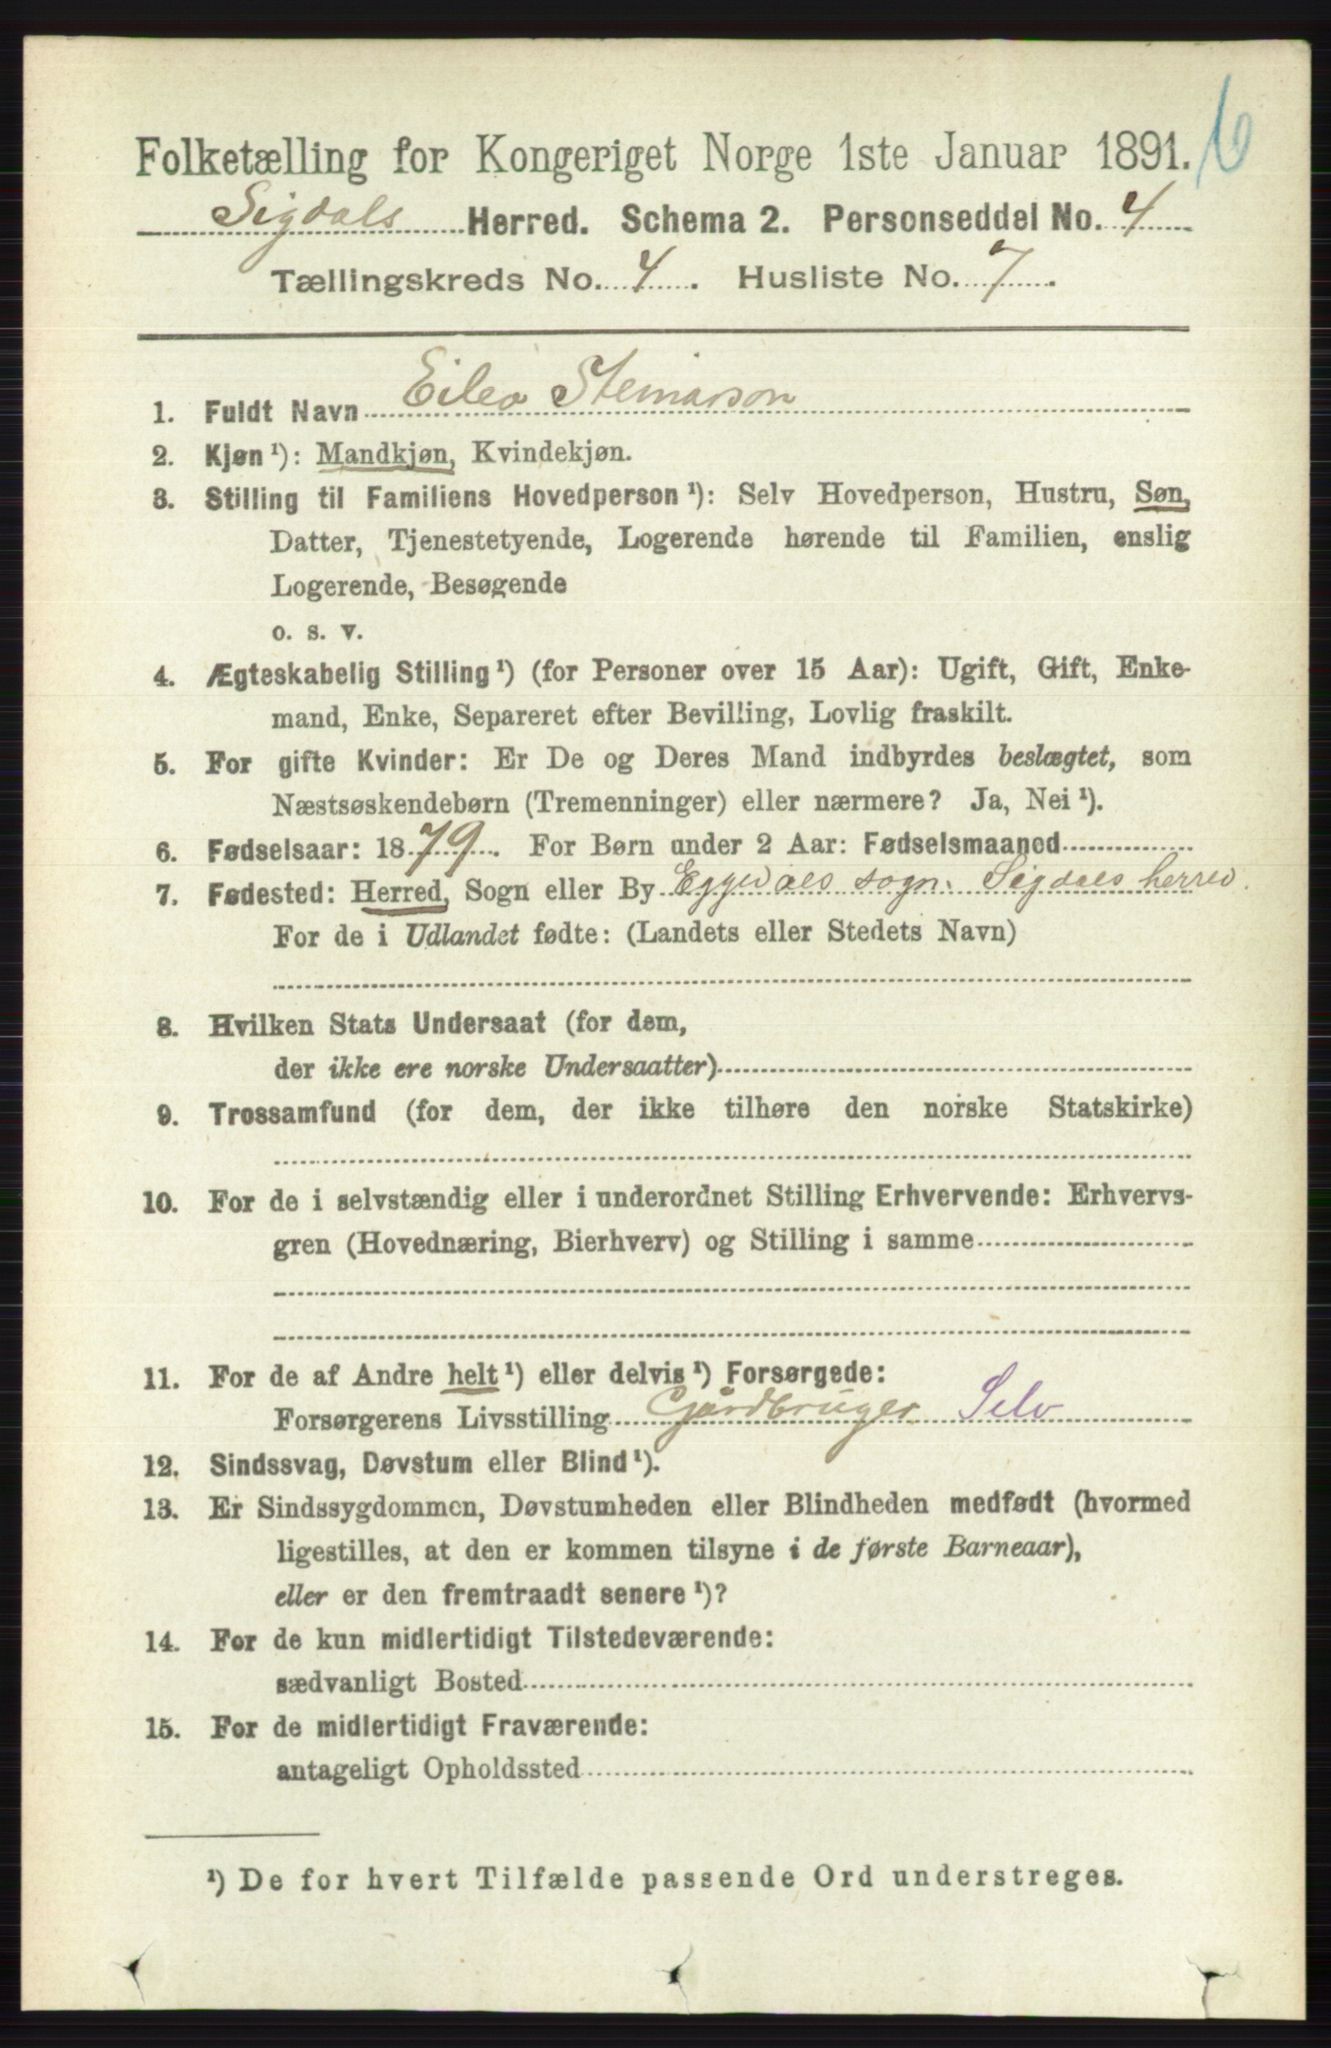 6
Folketælling for Kongeriget Norge 1ste Januar 1891.
Sigdals Herred. Schema 2. Personseddel No. 4
Tællingskreds No. 4. Husliste No. 7.
1. Fuldt Navn Eilev Steinarson
2. Kjøn ¹): Mandkjøn, Kvindekjøn.
3. Stilling til Familiens Hovedperson ¹): Selv Hovedperson, Hustru, Søn,
Datter, Tjenestetyende, Logerende hørende til Familien, enslig
Logerende, Besøgende
o. s. v.
4. Ægteskabelig Stilling ¹) (for Personer over 15 Aar): Ugift, Gift, Enke-
mand, Enke, Separeret efter Bevilling, Lovlig fraskilt.
5. For gifte Kvinder: Er De og Deres Mand indbyrdes beslægtet, som
Næstsøskendebørn (Tremenninger) eller nærmere? Ja, Nei ¹).
6. Fødselsaar: 1879. For Børn under 2 Aar: Fødselsmaaned
7. Fødested: Herred, Sogn eller By Eggedals sogn. Sigdals herred.
For de i Udlandet fødte: (Landets eller Stedets Navn)
8. Hvilken Stats Undersaat (for dem,
der ikke ere norske Undersaatter)
9. Trossamfund (for dem, der ikke tilhøre den norske Statskirke)
10. For de i selvstændig eller i underordnet Stilling Erhvervende: Erhvervs-
gren (Hovednæring, Bierhverv) og Stilling i samme
11. For de af Andre helt ¹) eller delvis ¹) Forsørgede:
Forsørgerens Livsstilling Gårdbruger Selv
12. Sindssvag, Døvstum eller Blind ¹).
13. Er Sindssygdommen, Døvstumheden eller Blindheden medfødt (hvormed
ligestilles, at den er kommen tilsyne i de første Barneaar),
eller er den fremtraadt senere ¹)?
14. For de kun midlertidigt Tilstedeværende:
sædvanligt Bosted
15. For de midlertidigt Fraværende:
antageligt Opholdssted
¹) De for hvert Tilfælde passende Ord understreges.